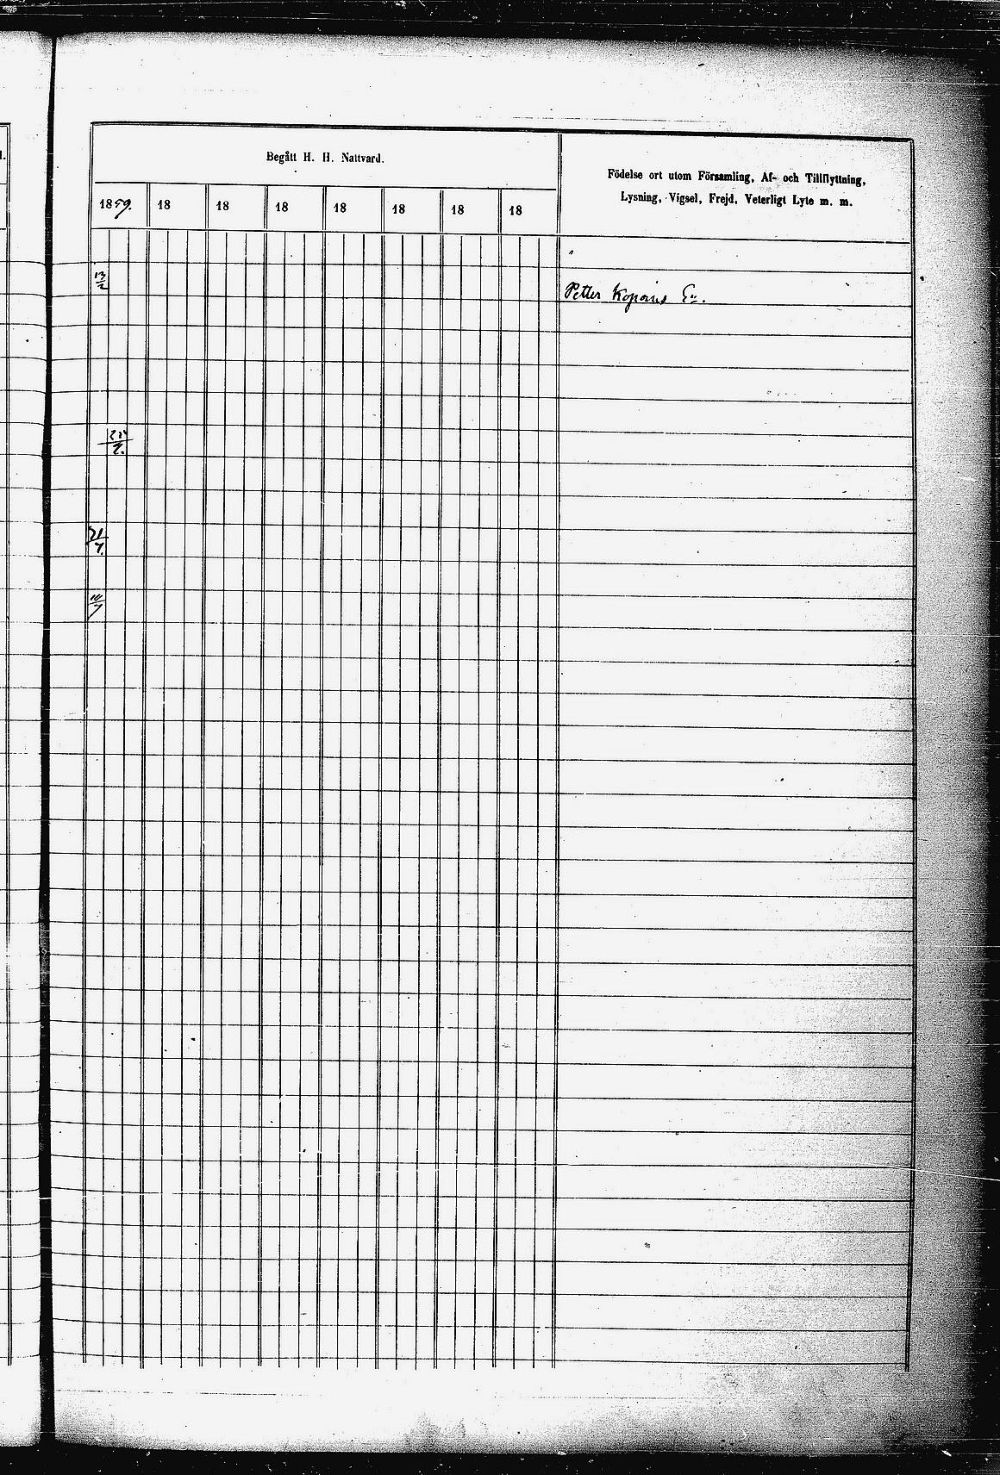 Begått H. H. Nattvard.
Födelse ort utom Församling, Af- och Tillflyttning,
Lysning, Vigsel, Frejd, Veterligt Lyte m. m.
1859. 18 18 18 18 18 18 18
13/2
Petter
25/2.
21/7.
10/7